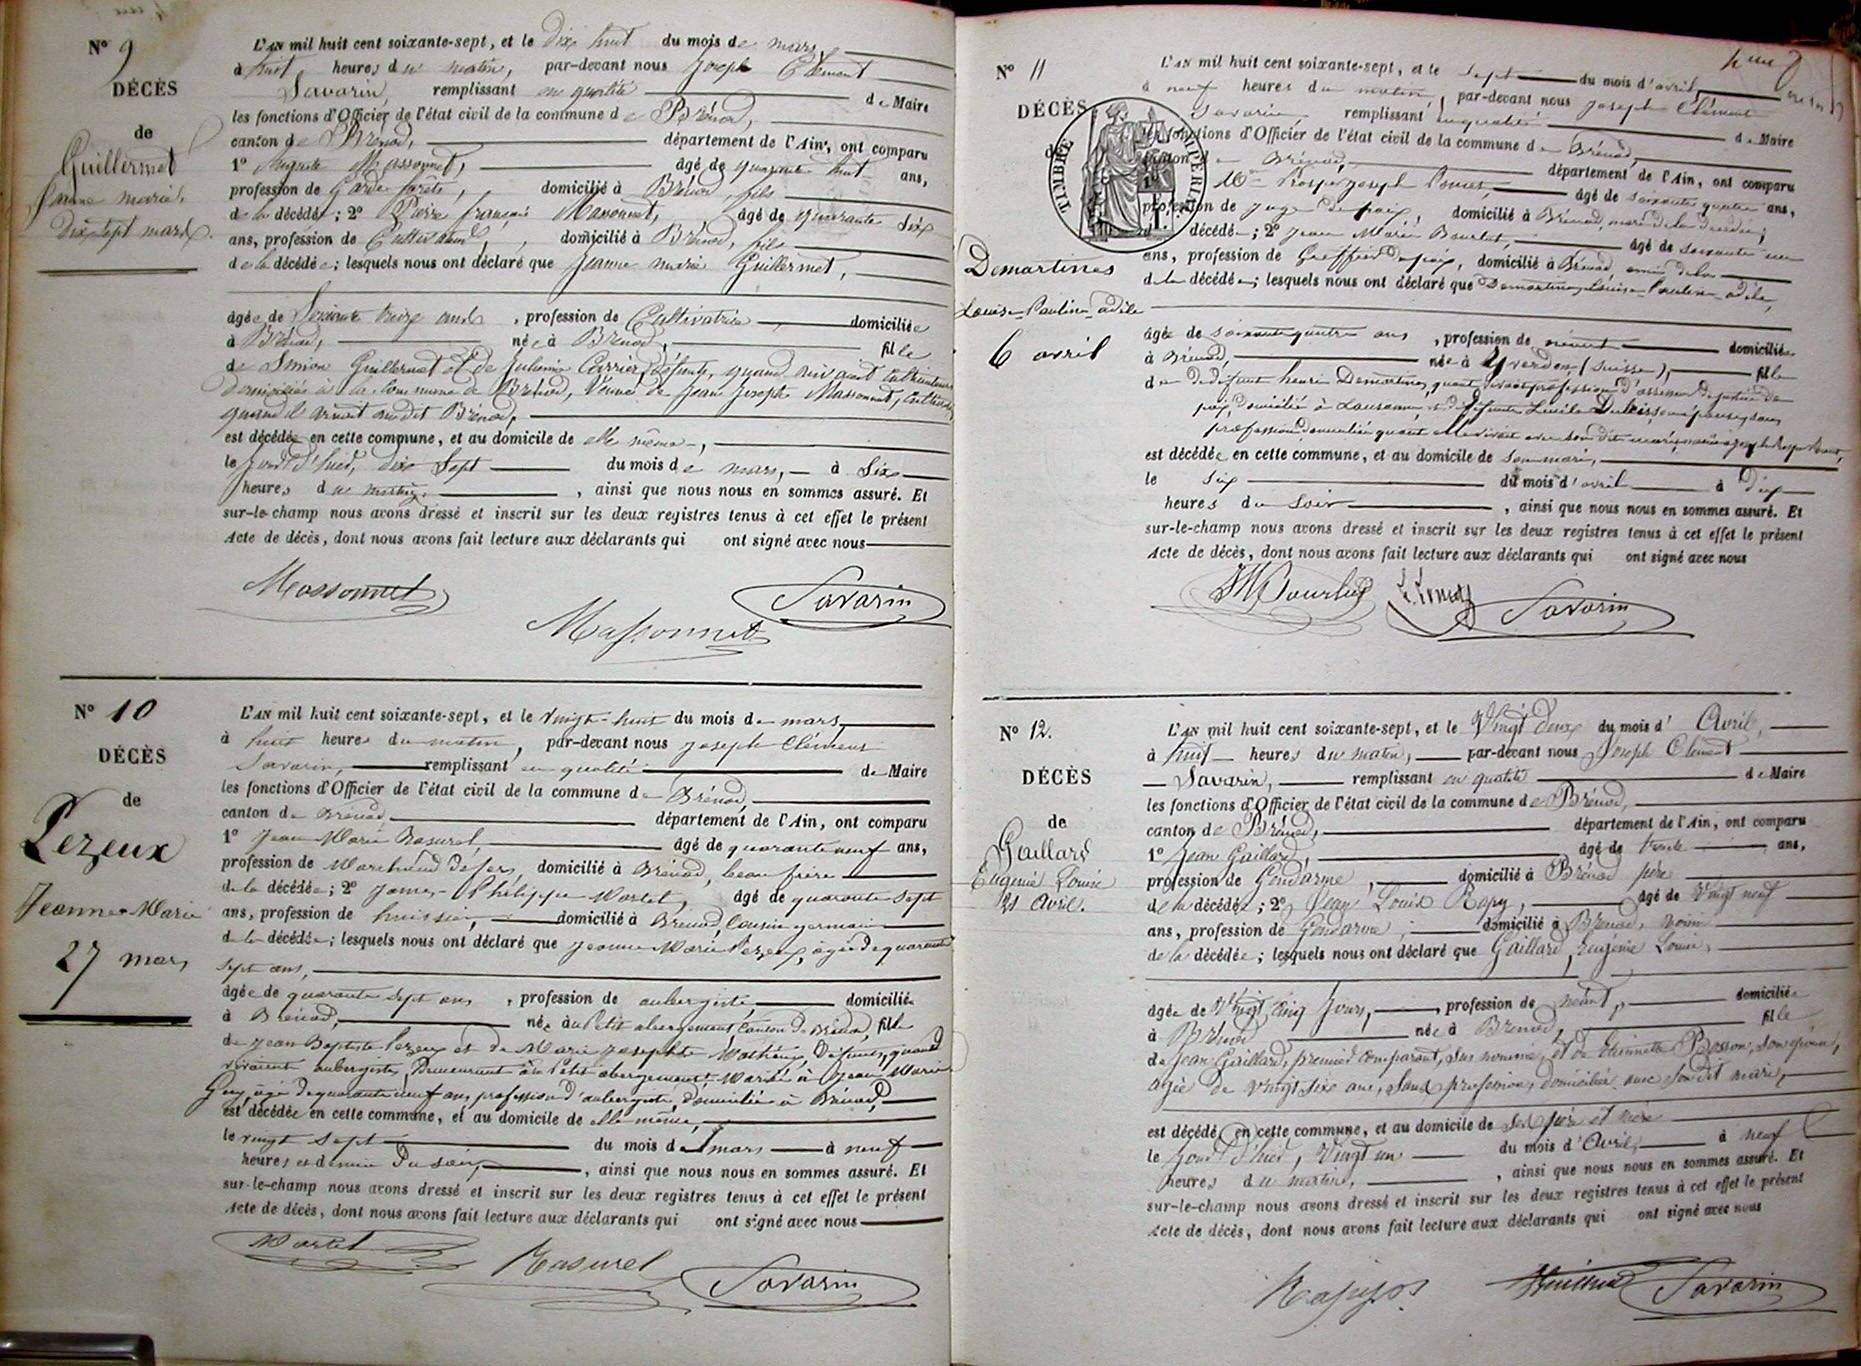 N° 9
DÉCÈS
de
Guillermet
Jeanne marie
Dix sept mars.
L'AN mil huit cent soixante-sept, et le dix huit du mois de mars,
à huit heures du matin, par-devant nous Joseph Clément
Savarin, remplissant en qualité de Maire
les fonctions d'Officier de l'état civil de la commune de Brénod,
canton de Brénod, département de l'Ain, ont comparu
1° Auguste Massonnet, âgé de quarante huit ans,
profession de Garde forêts, domicilié à Brénod, fils
de la décédée; 2° Pierre françois Massonnet, âgé de quarante six
ans, profession de Cultivateur, domicilié à Brénod, fils
de la décédée; lesquels nous ont déclaré que Jeanne marie Guillermet,
âgée de Soixante treize ans, profession de Cultivatrice domiciliée
à Brénod, née à Brénod, fille
de Simon Guillermet et de Julienne Carrier, défunts, quand vivaient cultivateurs
domiciliés à la Commune de Brénod, Veuve de Jean Joseph Massonnet, cultivateur
quand il vivait audit Brénod,
est décédée en cette commune, et au domicile de elle même,
le jour d'hier, dix sept du mois de mars, à six
heures du matin, ainsi que nous nous en sommes assuré. Et
sur-le-champ nous avons dressé et inscrit sur les deux registres tenus à cet effet le présent
Acte de décès, dont nous avons fait lecture aux déclarants qui ont signé avec nous
Massonnet
Massonnet
Savarin
N° 10
DÉCÈS
de
Pezeux
Jeanne Marie
27 mars
L'AN mil huit cent soixante-sept, et le vingt-huit du mois de mars
à huit heures du matin, par-devant nous Joseph Clément
Savarin, remplissant en qualité de Maire
les fonctions d'Officier de l'état civil de la commune de Brénod,
canton de Brénod département de l'Ain, ont comparu
1° Jean Marie Rasurel, âgé de quarante neuf ans,
profession de Marchand de fer, domicilié à Brénod, beau frère
de la décédée; 2° James Philippe Martel, âgé de quarante sept
ans, profession de huissier, domicilié à Brénod, Cousin germain
de la décédée; lesquels nous ont déclaré que Jeanne Marie Pezeux, âgée de quarante
sept ans,
âgée de quarante sept ans, profession de aubergiste, domiciliée
à Brénod, née au Petit abergement, Canton de Brénod, fille
de Jean Baptiste Pezeux et de Marie Josephte Mathieu, Défunts, quand
vivaient aubergistes, Demeurant au Petit abergement, Mariée à Jean Marie
Guy, âgé de quarante neuf ans, profession d'aubergiste, domicilié à Brénod,
est décédée en cette commune, et au domicile de elle même,
le vingt sept du mois de mars à neuf
heures et demie du soir, ainsi que nous nous en sommes assuré. Et
sur-le-champ nous avons dressé et inscrit sur les deux registres tenus à cet effet le présent
Acte de décès, dont nous avons fait lecture aux déclarants qui ont signé avec nous
Martel
Rasurel
Savarin
N° 11
DÉCÈS
TIMBRE IMPÉRIAL
Demartines
Louise Pauline adèle
6 avril
L'AN mil huit cent soixante-sept, et le sept du mois d'avril,
à neuf heures du matin, par-devant nous Joseph Clément
Savarin, remplissant en qualité de Maire
les fonctions d'Officier de l'état civil de la commune de Brénod,
canton de Brénod, département de l'Ain, ont comparu
Prosper Joseph âgé de soixante quatre ans,
profession de juge de paix, domicilié à Brénod, mari de la décédée;
décédée; 2° Jean Marie Bourlet, âgé de soixante un
ans, profession de Greffier de paix, domicilié à Brénod, ami de la
de la décédée; lesquels nous ont déclaré que Demartines Louise Pauline adèle,
âgée de soixante quatre ans, profession de néant domiciliée
à Brénod, née à Yverdon (Suisse), fille
de défunt henri Demartines, quand vivait profession d'assesseur de justice de
paix, domicilié à Lausanne, et de défunte Lucile Dubois son épouse, sans
profession, domiciliée quand elle vivait avec son dit mari,
est décédée en cette commune, et au domicile de son mari,
le six du mois d'avril à dix
heures du soir, ainsi que nous nous en sommes assuré. Et
sur-le-champ nous avons dressé et inscrit sur les deux registres tenus à cet effet le présent
Acte de décès, dont nous avons fait lecture aux déclarants qui ont signé avec nous
JM Bourlet
Savarin
N° 12.
DÉCÈS
de
Gaillard
Eugénie Louise
21 Avril.
L'AN mil huit cent soixante-sept, et le Vingt deux du mois d'Avril,
à huit heures du matin, par-devant nous Joseph Clément
Savarin, remplissant en qualité de Maire
les fonctions d'Officier de l'état civil de la commune de Brénod,
canton de Brénod, département de l'Ain, ont comparu
1° Jean Gaillard, âgé de trente ans,
profession de Gendarme, domicilié à Brénod père
de la décédée; 2° Jean Louis âgé de Vingt neuf
ans, profession de Gendarme, domicilié à Brénod, voisin
de la décédée; lesquels nous ont déclaré que Gaillard Eugénie Louise,
âgée de Vingt cinq Jours, profession de néant, domiciliée
à Brénod née à Brénod, fille
de Jean Gaillard, premier comparant, sus nommé, et de Etiennette Bosson, son épouse,
âgée de vingt six ans, sans profession, domiciliée avec son dit mari,
est décédée en cette commune, et au domicile de ses père et mère
le jour d'hier, Vingt un du mois d'Avril, à neuf
heures du matin, ainsi que nous nous en sommes assuré. Et
sur-le-champ nous avons dressé et inscrit sur les deux registres tenus à cet effet le présent
Acte de décès, dont nous avons fait lecture aux déclarants qui ont signé avec nous
Savarin